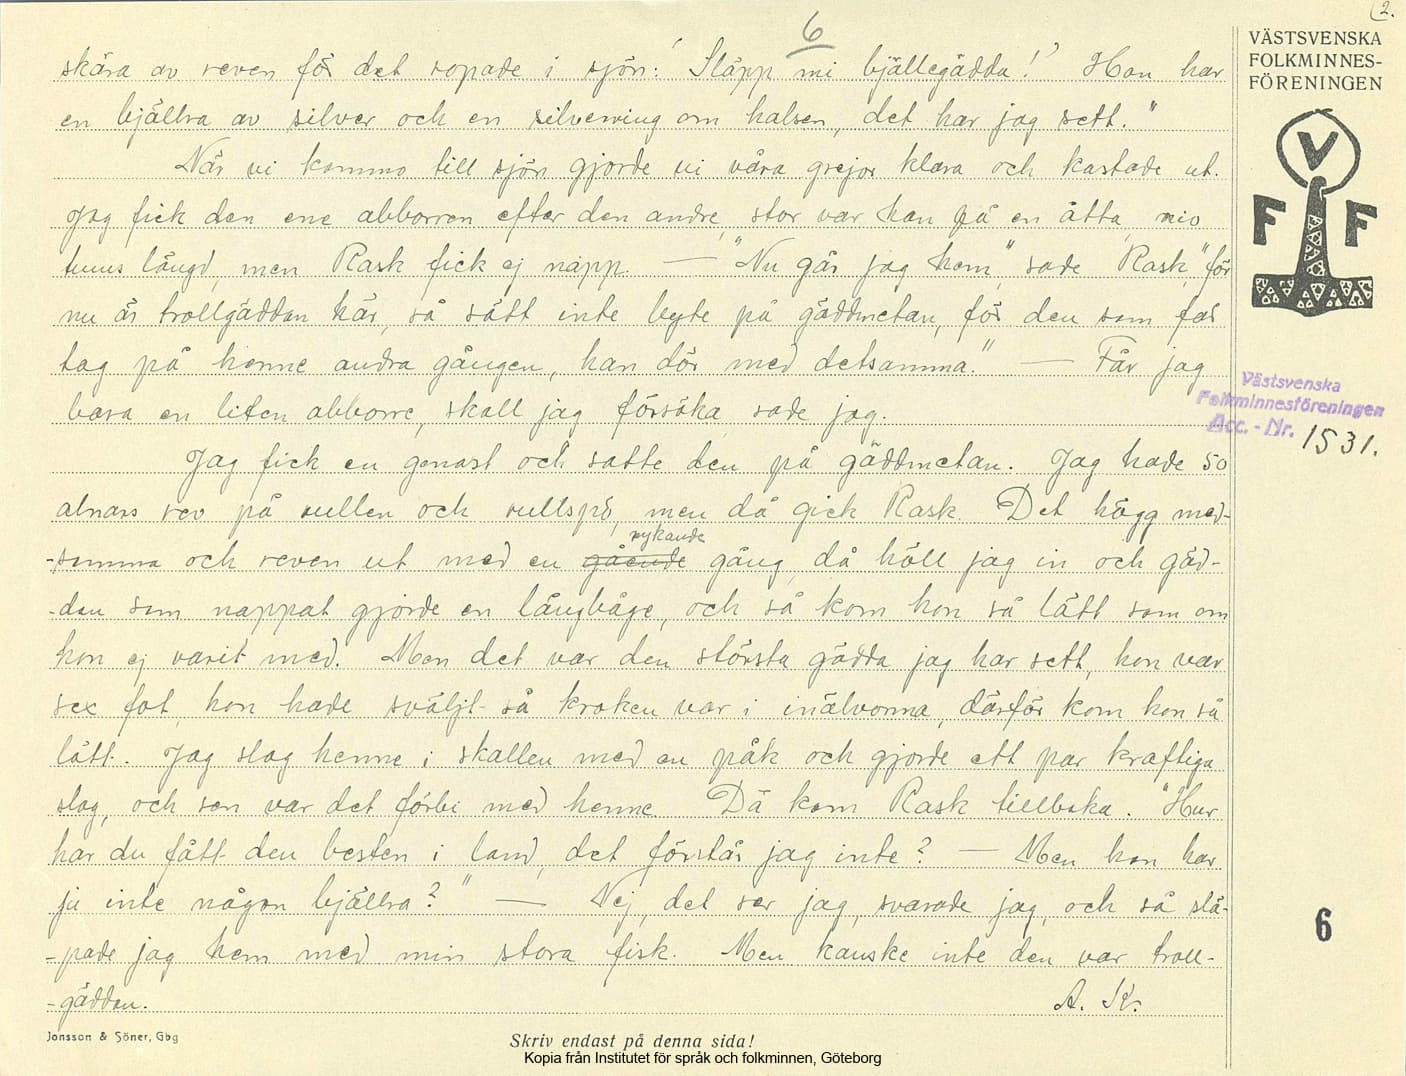 (2.
6
VÄSTSVENSKA
FOLKMINNES-
FÖRENINGEN
V
F F
Västsvenska
Folkminnesföreningen
Acc. - Nr. 1531.
skära av reven för det ropade i sjön: 'Släpp mi bjällegädda!' Hon har
en bjällra av silver och en silverring om halsen, det har jag sett."
När vi kommo till sjön gjorde vi våra grejor klara och kastade ut.
Jag fick den ene abborren efter den andre, stor var han på en åtta, nio
tums längd, men Rask fick ej napp. — "Nu går jag hem", sade Rask, "för
nu är trollgäddan här, så sätt inte bete på gäddmetan, för den som får
tag på henne andra gången, han dör med detsamma." — Får jag
bara en liten abborre, skall jag försöka, sade jag.
Jag fick en genast och satte den på gäddmetan. Jag hade 50
alnars rev på rullen och rullspö, men då gick Rask. Det högg med-
-samma och reven ut med en gående rykande gång, då höll jag in och gäd-
-dan som nappat gjorde en långbåge, och så kom hon så lätt som om
hon ej varit med. Men det var den största gädda jag har sett, hon var
sex fot, hon hade sväljt så kroken var i inälvorna, därför kom hon så
lätt. Jag slog henne i skallen med en påk och gjorde ett par kraftiga
slag, och sen var det förbi med henne. Då kom Rask tillbaka. "Hur
har du fått den besten i land, det förstår jag inte? — Men hon har
ju inte någon bjällra?" — Nej, det ser jag, svarade jag, och så slä-
-pade jag hem med min stora fisk. Men kanske inte den var troll-
-gäddan. A. K.
6
Jonsson & Söner, Gbg
Skriv endast på denna sida!
Kopia från Institutet för språk och folkminnen, Göteborg